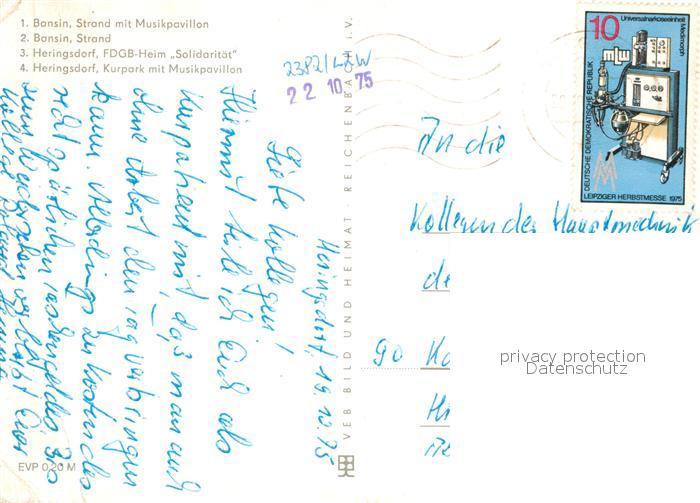 1. Bansin, Strand mit Musikpavillon
2. Bansin, Strand
3. Heringsdorf, FDGB-Heim „Solidarität"
4. Heringsdorf, Kurpark mit Musikpavillon
22 10. 75
Heringsdorf, 19.10.75
Liebe Kollegen!
Hiermit teile ich Euch als
Kurpatient mit, daß man auch
ohne Arbeit den Tag verbringen
kann. Allerdings zu Kosten des
Taschengeldes.
Kollege
EVP 0,20 M
VEB BILD UND HEIMAT · REICHENBACH i. V.
10
Universalnarkoseeinheit
Medimorph
DEUTSCHE DEMOKRATISCHE REPUBLIK
LEIPZIGER HERBSTMESSE 1975
An die
Kollegen der Hauptmechanik
de
90 Ka
privacy protection
Datenschutz